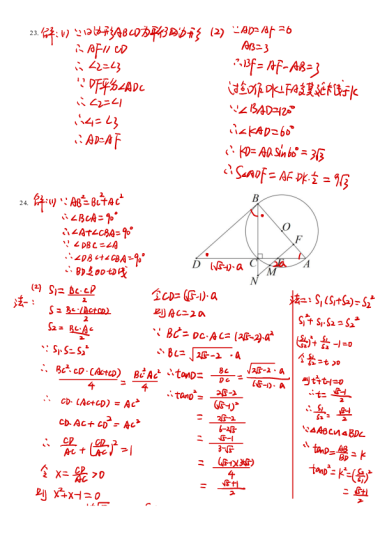 23. 解:(1) ∵四边形ABCD为平行四边形
∴AF∥CD
∴∠2=∠3
∵DF平分∠ADC
∴∠2=∠1
∴∠1=∠3
∴AD=AF
(2) ∵AD=AF=6
AB=3
∴BF=AF-AB=3
过D作DK⊥FA交其延长线于K
∵∠BAD=120°
∴∠KAD=60°
∴KD=AD·sin60°=3√3
∴S△ADF=AF·DK·1/2=9√3
24. 解:(1) ∵AB²=BC²+AC²
∴∠BCA=90°
∴∠A+∠CBA=90°
∵∠DBC=∠A
∴∠DBC+∠CBA=90°
∴BD是⊙O切线
B
O
F
D
C
E
A
M
N
(√5-1)·a
2a
(2)
法一:
S₁=BC·CD/2
S=BC·(AC+CD)/2
S₂=BC·AC/2
∵S₁·S=S₂²
∴BC²·CD·(AC+CD)/4=BC²AC²/4
∴CD·(AC+CD)=AC²
CD·AC+CD²=AC²
∴CD/AC+(CD/AC)²=1
令x=CD/AC>0
则x²+x-1=0
令CD=(√5-1)·a
则AC=2a
∵BC²=DC·AC=(2√5-2)·a²
∴BC=√(2√5-2)·a
∴tanD=BC/DC=√(2√5-2)·a/(√5-1)·a
∴tan²D=(2√5-2)/(√5-1)²
=(2√5-2)/(6-2√5)
=(√5-1)/(3-√5)
=(√5-1)(3+√5)/4
=(√5+1)/2
法二: S₁(S₁+S₂)=S₂²
S₁²+S₁·S₂=S₂²
(S₁/S₂)²+S₁/S₂-1=0
令S₁/S₂=t>0
则t²+t-1=0
∴t=(√5-1)/2
∴S₁/S₂=(√5-1)/2
∵△ABC∽△BDC
∴tanD=AB/BD=k
tan²D=k²=(S₂/S₁)
=(√5+1)/2